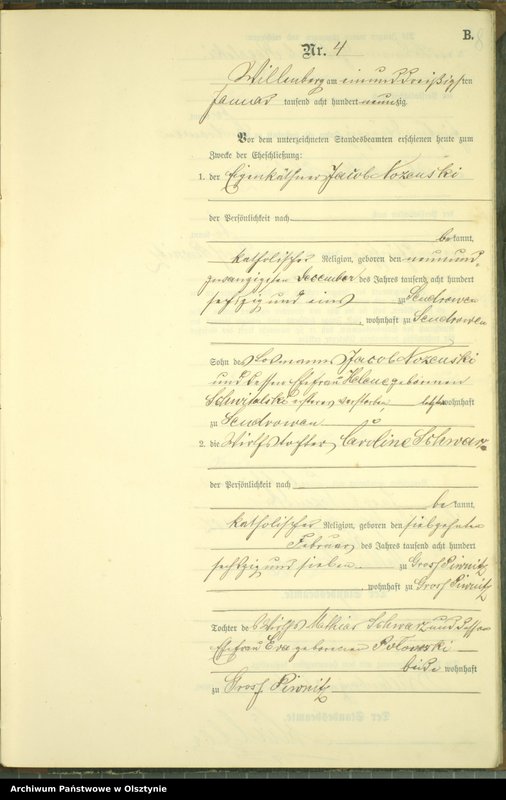 B.
Nr. 4
Willenberg am einunddreißigsten
Januar tausend acht hundert neunzig.
Vor dem unterzeichneten Standesbeamten erschienen heute zum
Zwecke der Eheschließung:
1. der Eigenkäthner Jacob Nozenski
der Persönlichkeit nach
be kannt,
katholischer Religion, geboren den neunund-
zwanzigsten December des Jahres tausend acht hundert
sechszig und eins zu Sendrowen
, wohnhaft zu Sendrowen
Sohn des Losmanns Jacob Nozenski
und dessen Ehefrau Helene geborenen
Schwitalski ersterer verstorben, letzte wohnhaft
zu Sendrowen
2. die Wirthstochter Caroline Schwarz
der Persönlichkeit nach
be kannt,
katholischer Religion, geboren den siebzehnten
Februar des Jahres tausend acht hundert
sechszig und sieben zu Gross Piwnitz
, wohnhaft zu Gross Piwnitz
Tochter des Wirths Mathias Schwarz und dessen
Ehefrau Eva geborenen
beide wohnhaft
zu Gross Piwnitz
Archiwum Państwowe w Olsztynie